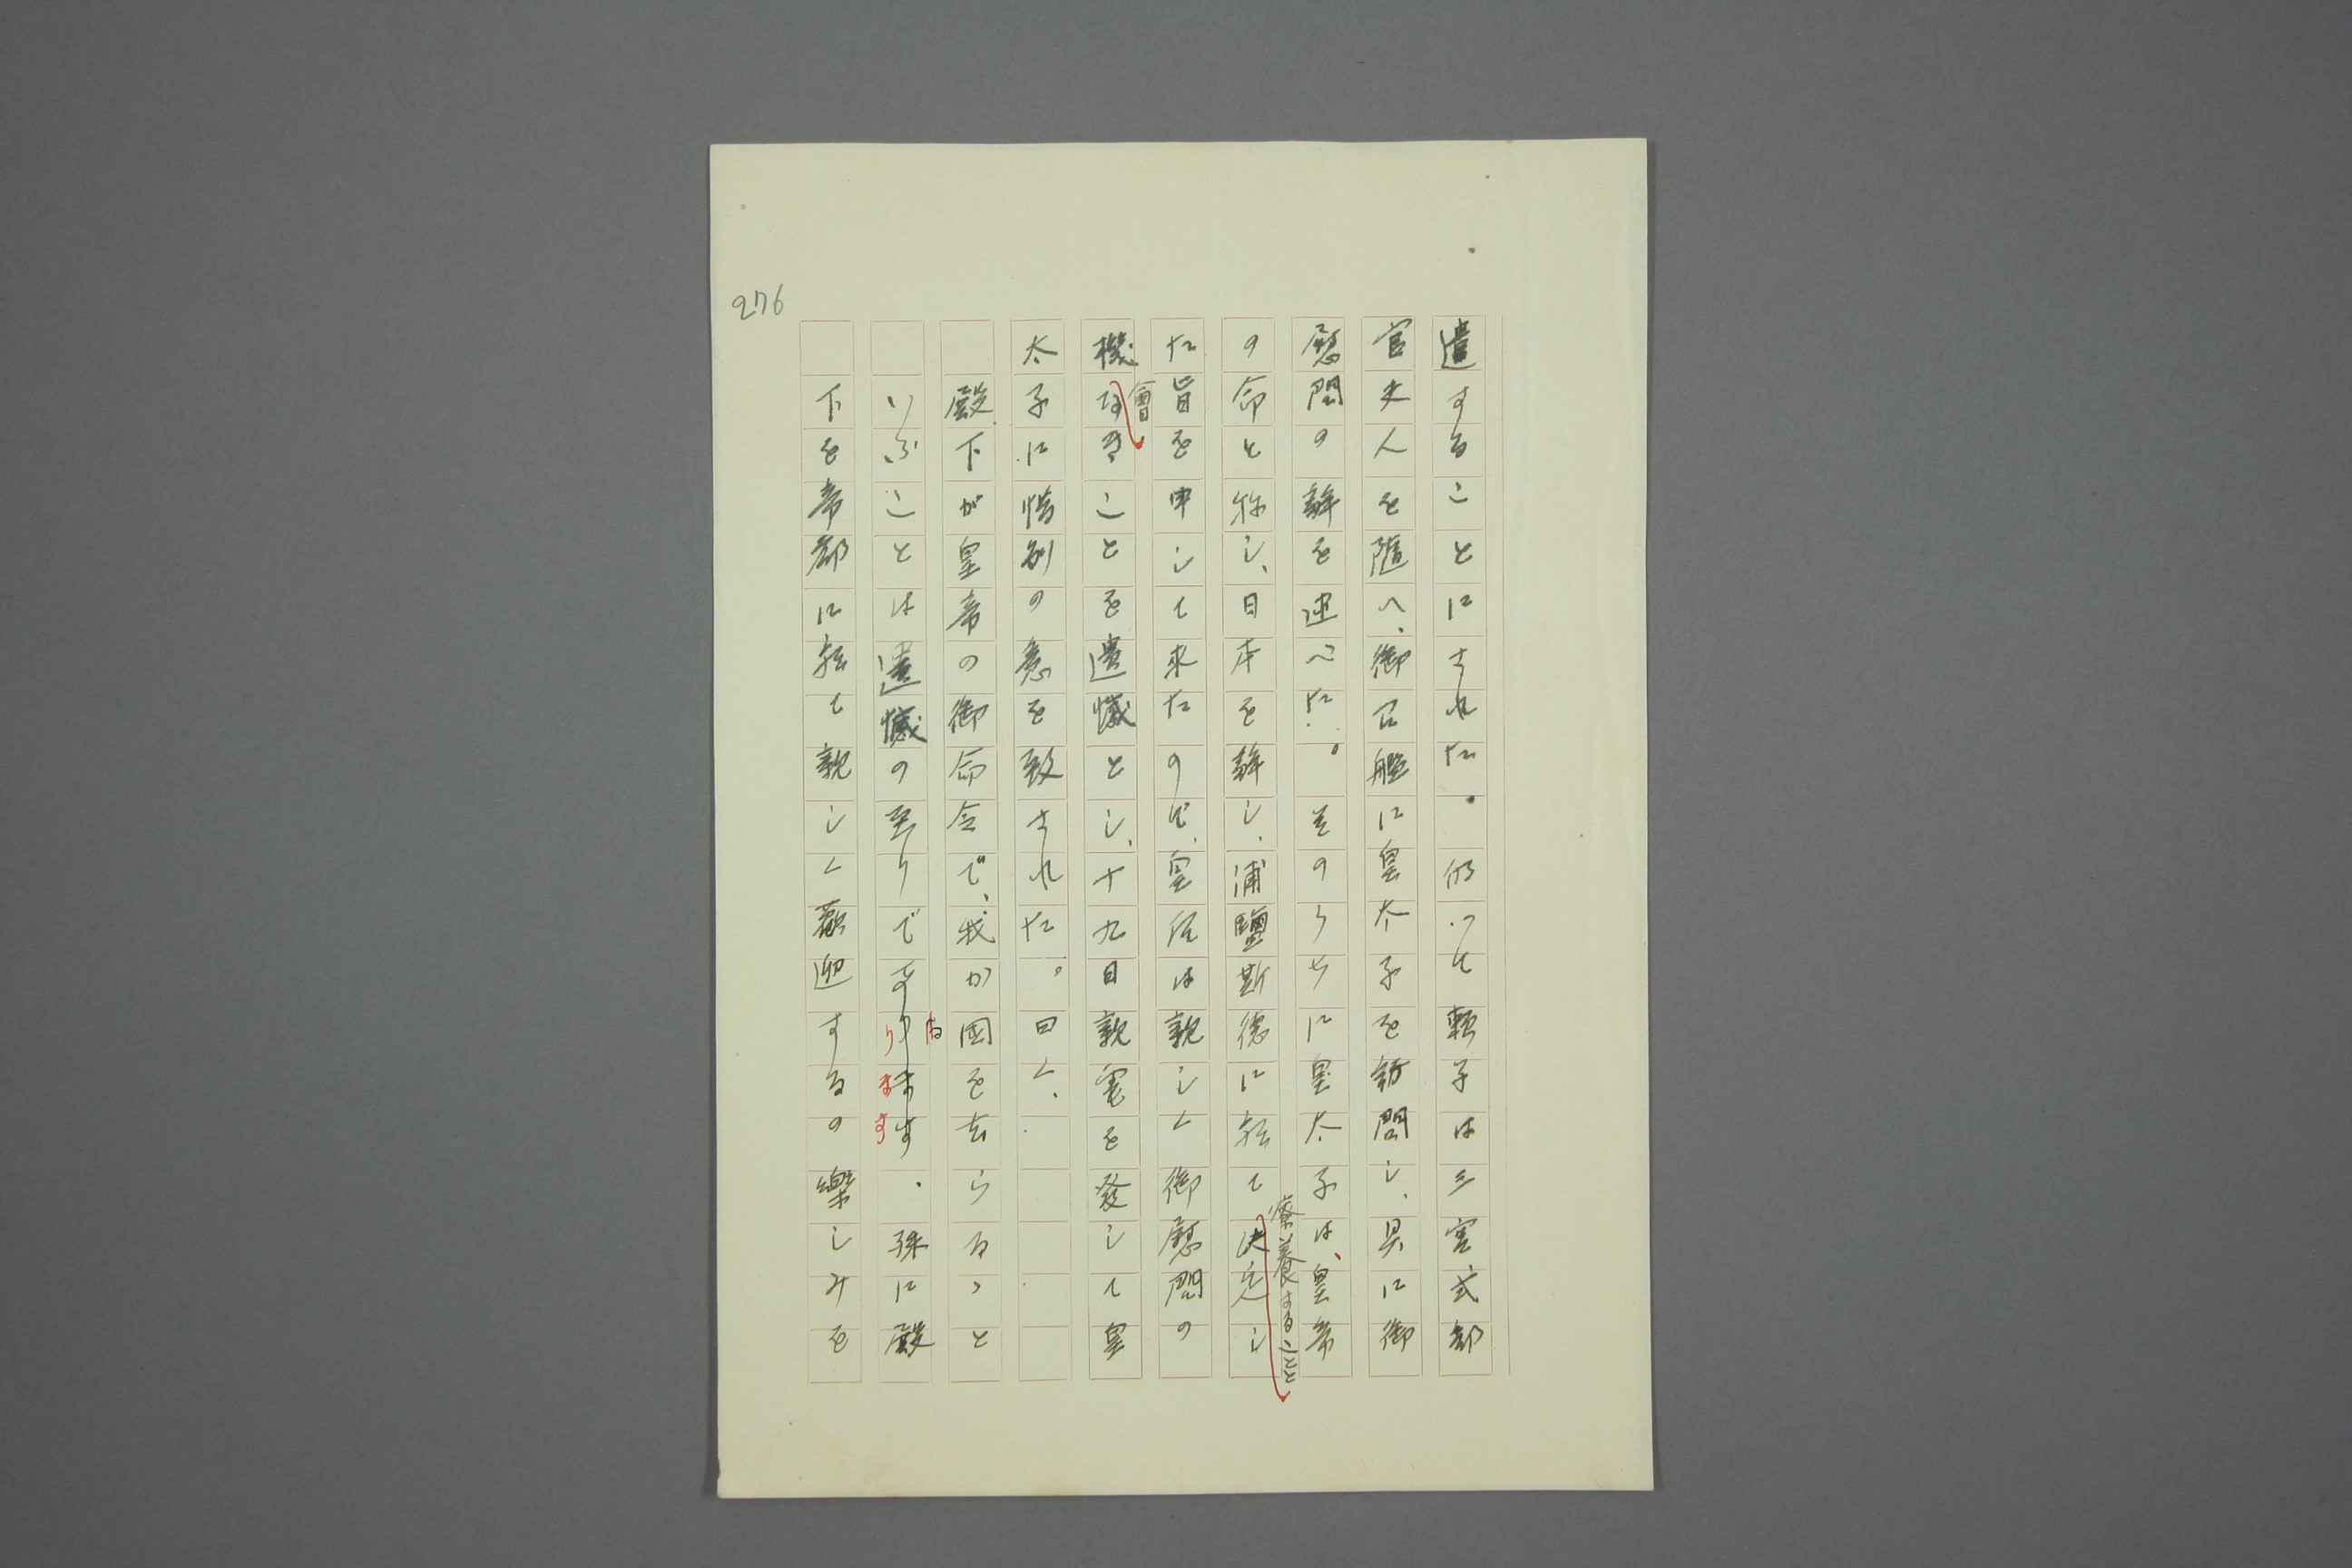 276
遣することにされた。仍つて頼子は三宮式部
官夫人を隨へ、御召艦に皇太子を訪問し、具に御
慰問の辭を述べた。そのうちに皇太子は、皇帝
療養すること
の命と称し、日本を辭し、浦鹽斯徳に於て決定し
た旨を申して来たので、皇后は親しく御慰問の
會
機なきことを遺憾とし、十九日親電を發して皇
太子に惜別の意を致された。曰く、
殿下が皇帝の御命令で、我か国を去らるゝと
いふことは遺憾の至りで ります 、殊に殿
下を帝都に於て親しく歡迎するの樂しみを